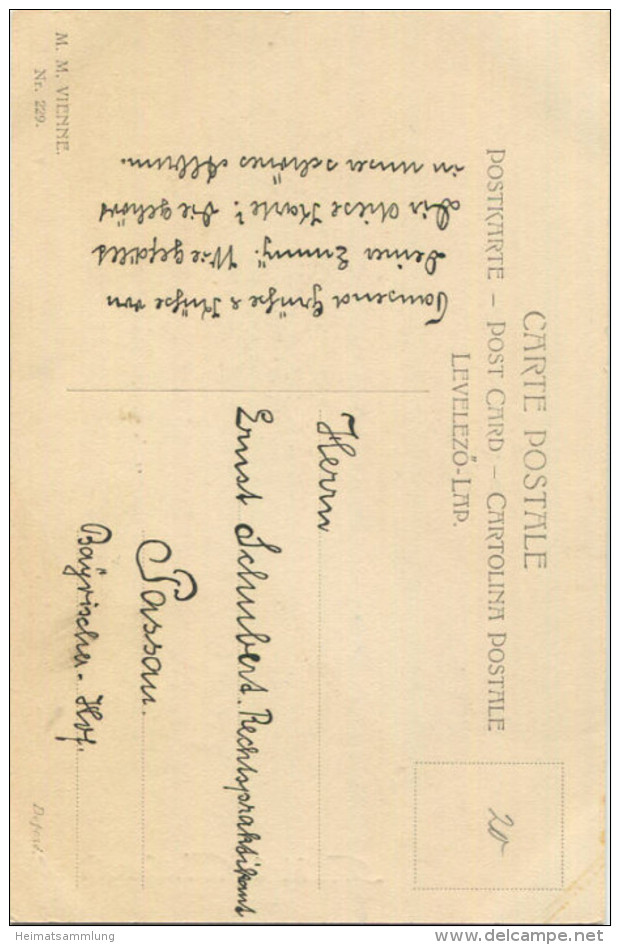 CARTE POSTALE
POSTKARTE – POST CARD – CARTOLINA POSTALE
LEVELEZŐ-LAP.
Tausend Grüße & Küsse von
Deiner Emmy. Wie gefällt
Dir diese Karte? Sie gehört
in unser schönes Album.
20
Herrn
Ernst Schubert. Rechtspraktikant
Passau.
Bayrischer-Hof.
M. M. VIENNE.
Nr. 229.
Heimatsammlung
www.delcampe.net